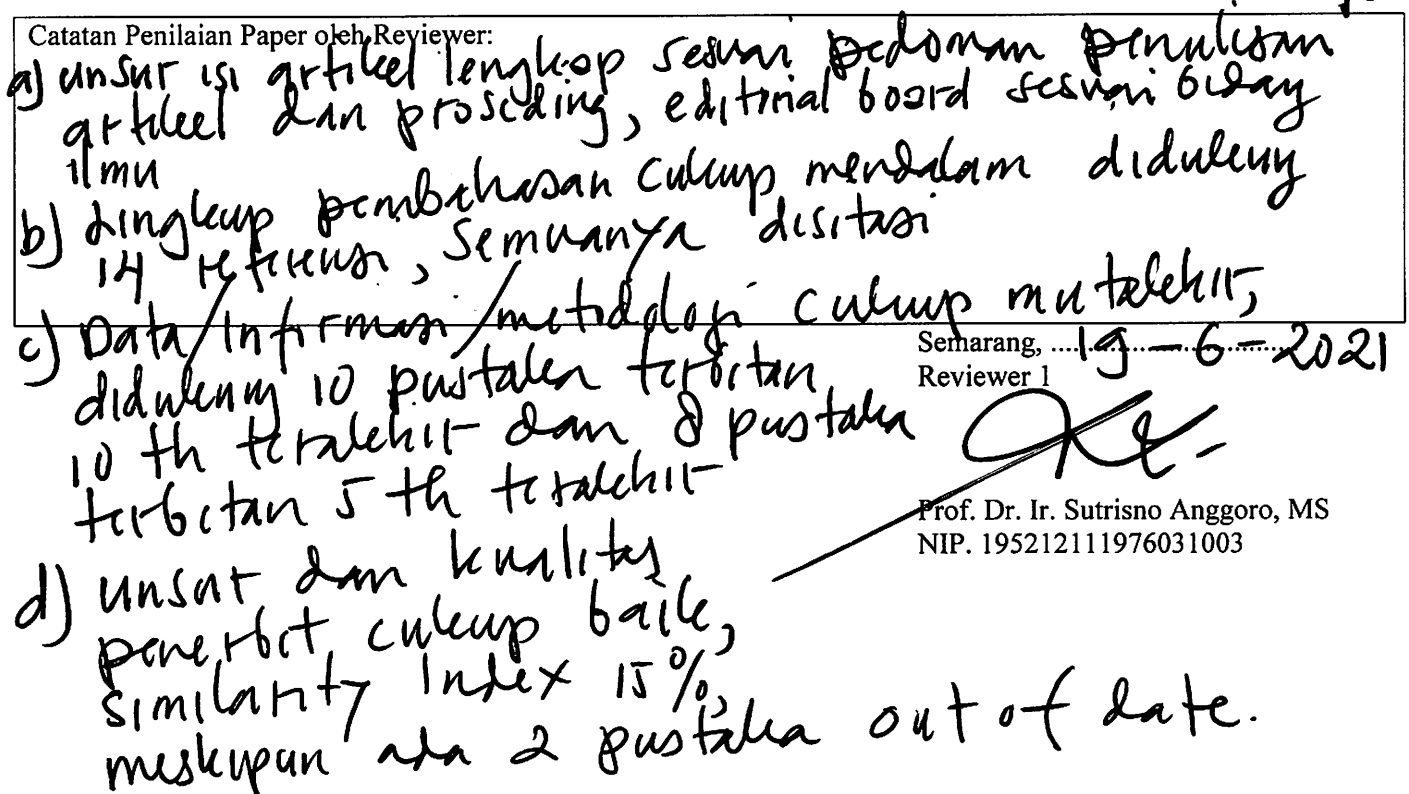 Catatan Penilaian Paper oleh Reviewer:
a) unsur isi artikel lengkap sesuai pedoman penulisan
artikel dan prosiding, editorial board sesuai bidang
ilmu
b) Lingkup pembahasan cukup mendalam didukung
14 referensi, semuanya disitasi
c) Data/Informasi/metodologi cukup mutakhir,
didukung 10 pustaka terbitan
10 th terakhir dan 8 pustaka
terbitan 5 th terakhir
d) unsur dan kualitas
penerbit cukup baik,
similarity Index 15%,
meskipun ada 2 pustaka out of date.
Semarang, ....19-6-2021
Reviewer 1
Prof. Dr. Ir. Sutrisno Anggoro, MS
NIP. 195212111976031003